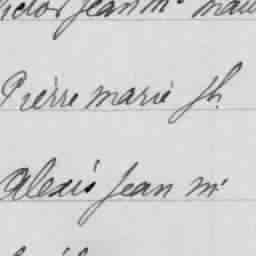 Victor Jean M.
Pierre marie Jh.
Alexis Jean m.